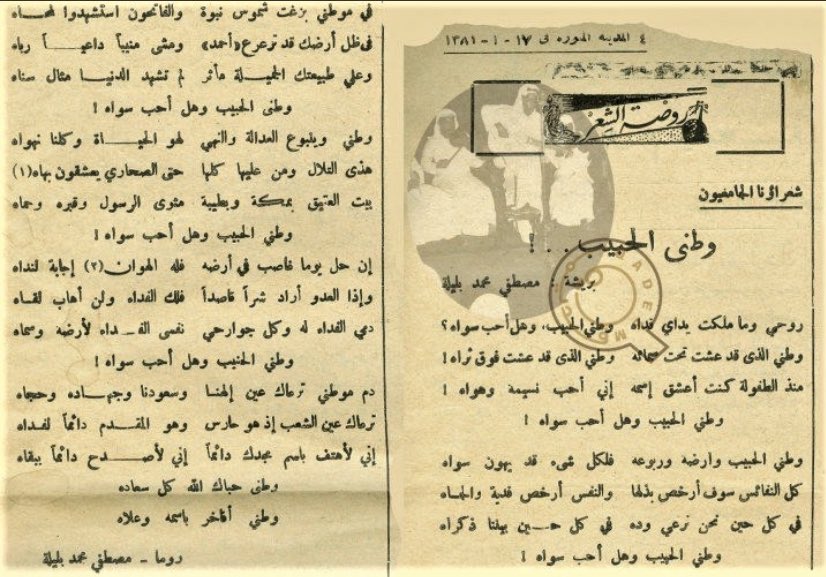 ٤ المدينة المنوره في ١٧-١-١٣٨١
روضة الشعر
شعراؤنا الجامعيون
وطني الحبيب . . . !
بريشة : مصطفي محمد بليلة
روحي وما ملكت يداي فداه وطني الحبيب، وهل أحب سواه؟
وطني الذي قد عشت تحت سمائه وطني الذي قد عشت فوق ثراه !
منذ الطفولة كنت أعشق إسمه إني أحب نسيمة وهواه !
وطني الحبيب وهل أحب سواه !
وطني الحبيب وارضة وربوعه فلكل شيء قد يهون سواه
كل النفائس سوف أرخص بذلها والنفس أرخص فدية والجاه
في كل حين نحن نرعي وده في كل حسين يهلنا ذكراه
وطني الحبيب وهل أحب سواه !
في موطني بزغت شموس نبوة والفاتحون استشهدوا لمحاه
في ظل أرضك قد ترعرع «أحمد» ومشى منيباً داعياً رباه
وعلي طبيعتك الجميلة مآثر لم تشهد الدنيا مثال سناه
وطني الحبيب وهل أحب سواه !
وطني وينبوع العدالة والنهي لهو الحياة وكلنا نهواه
هذى التلال ومن عليها كلها حتى الصحاري يعشقون بهاه(١)
بيت العتيق بمكة وبطيبة مثوى الرسول وقبره وحماه
وطني الحبيب وهل أحب سواه !
إن حل يوما غاصب في أرضه فله الهوان(٢) إجابة لنداه
وإذا العدو أراد شراً قاصداً فلك الفداء ولن أهاب لقاه
دمي الفداء له وكل جوارحي نفسى الفداء لأرضه وسماه
وطني الحبيب وهل أحب سواه !
دم موطني ترعاك عين إلهنا وسعودنا وجهاده وحجاه
ترعاك عين الشعب إذ هو حارس وهو المقدم دائماً لفداه
إني لأهتف باسم مجدك دائماً إني لأصدح دائماً ببقاه
وطني حباك الله كل سعاده
وطني أفاخر باسمه وعلاه
روما - مصطفي محمد بليلة